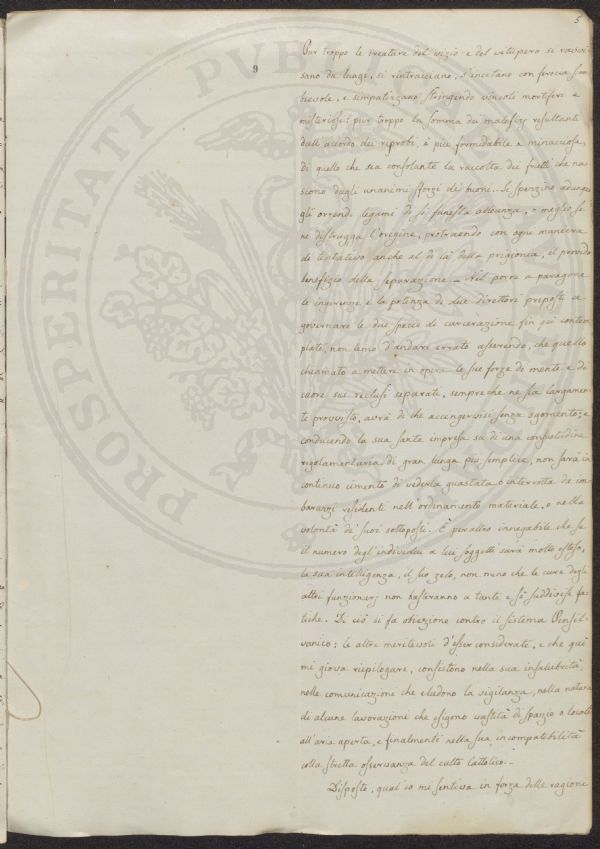 5
9
Pur troppo le creature del vizio e del vitupero si ravvi-
sano da lungi, si rintracciano, s'incettano con ferocia scam-
bievole, e simpatizzano stringendo vincoli mortiferi e
misteriosi: pur troppo la somma dei malefizj resultante
dall'accordo dei reprobi, è più formidabile e minacciosa,
di quello che sia consolante la raccolta dei frutti che na-
scono dagli unanimi sforzi dei buoni. Si spenzino adunque
gli orrendi legami di sì funesta alleanza, o meglio se
ne distrugga l'origine, protraendo con ogni maniera
di tentativo anche al di là della prigionia, il provido
benefizio della separazione. Nel porre a paragone
le ingerenze e la potenza di due direttori preposti a
governare le due specie di carcerazione fin quì contem-
plate, non temo d'andare errato asserendo, che quello
chiamato a mettere in opera le sue forze di mente e di
cuore sui reclusi separati, sempre che ne sia largamen-
te provvisto, avrà di che accingervisi senza sgomento; e
conducendo la sua santa impresa su di una consuetudine
regolamentaria di gran lunga più semplice, non sarà in
continuo cimento di vederla guastata o interrotta da im-
barazzi residenti nell'ordinamento materiale, o nella
volontà de' suoi sottoposti. È peraltro innegabile che se
il numero degl'individui a lui soggetti sarà molto esteso,
la sua intelligenza, il suo zelo, non meno che le cure degli
altri funzionarj non basteranno a tante e sì suddivise fa-
tiche. Di ciò si fa obiezione contro il sistema Pensil-
vanico: le altre meritevoli d'esser considerate, e che quì
mi giova riepilogare, consistono nella sua insalubrità,
nelle comunicazione che eludono la vigilanza, nella natura
di alcune lavorazioni che esigono vastità di spazio o locali
all'aria aperta, e finalmente nella sua incompatibilità
colla stretta osservanza del culto Cattolico.
Disposto, qual io mi sentiva in forza delle ragioni
PROSPERITATI PUBLIC